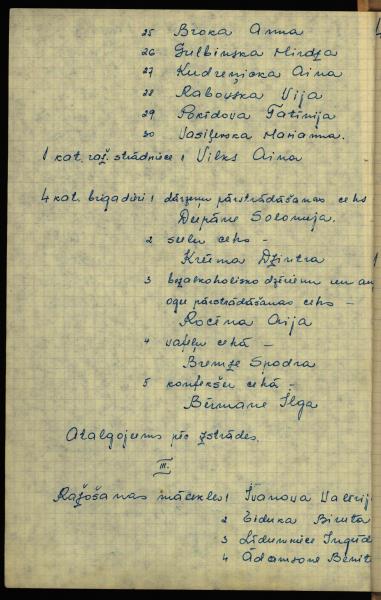 25 Broka Anna
26 Gulbinska Mirdza
27 Kudreņicka Aina
28 Rabovska Vija
29 Rokidova Tatīnija
30 Vasiļevska Marianna.
1 kat. raž. strādniece 1 Vilks Aina
4 kat. brigadieri 1 dārzeņu pārstrādāšanas cehs
Dupāne Solomeja.
2 sulu cehs –
Krūma Dzintra
3 bezalkoholisko dzērienu un
ogu pārstrādāšanas cehs –
Rocēna Aija
4 vafeļu cehā –
Bremze Spodra
5 konfekšu cehā –
Bērmane Ilga
Atalgojums pēc izstrādes.
III.
Ražošanas mācekle 1 Ivanova
2 Eiduka Biruta
3 Līdumniece
4 Ādamsone